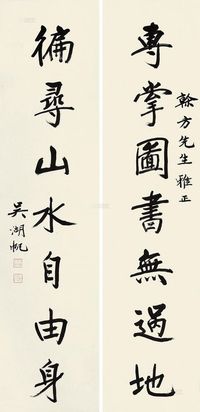 專掌圖書無過地
榦方先生雅正
徧尋山水自由身
吳湖帆